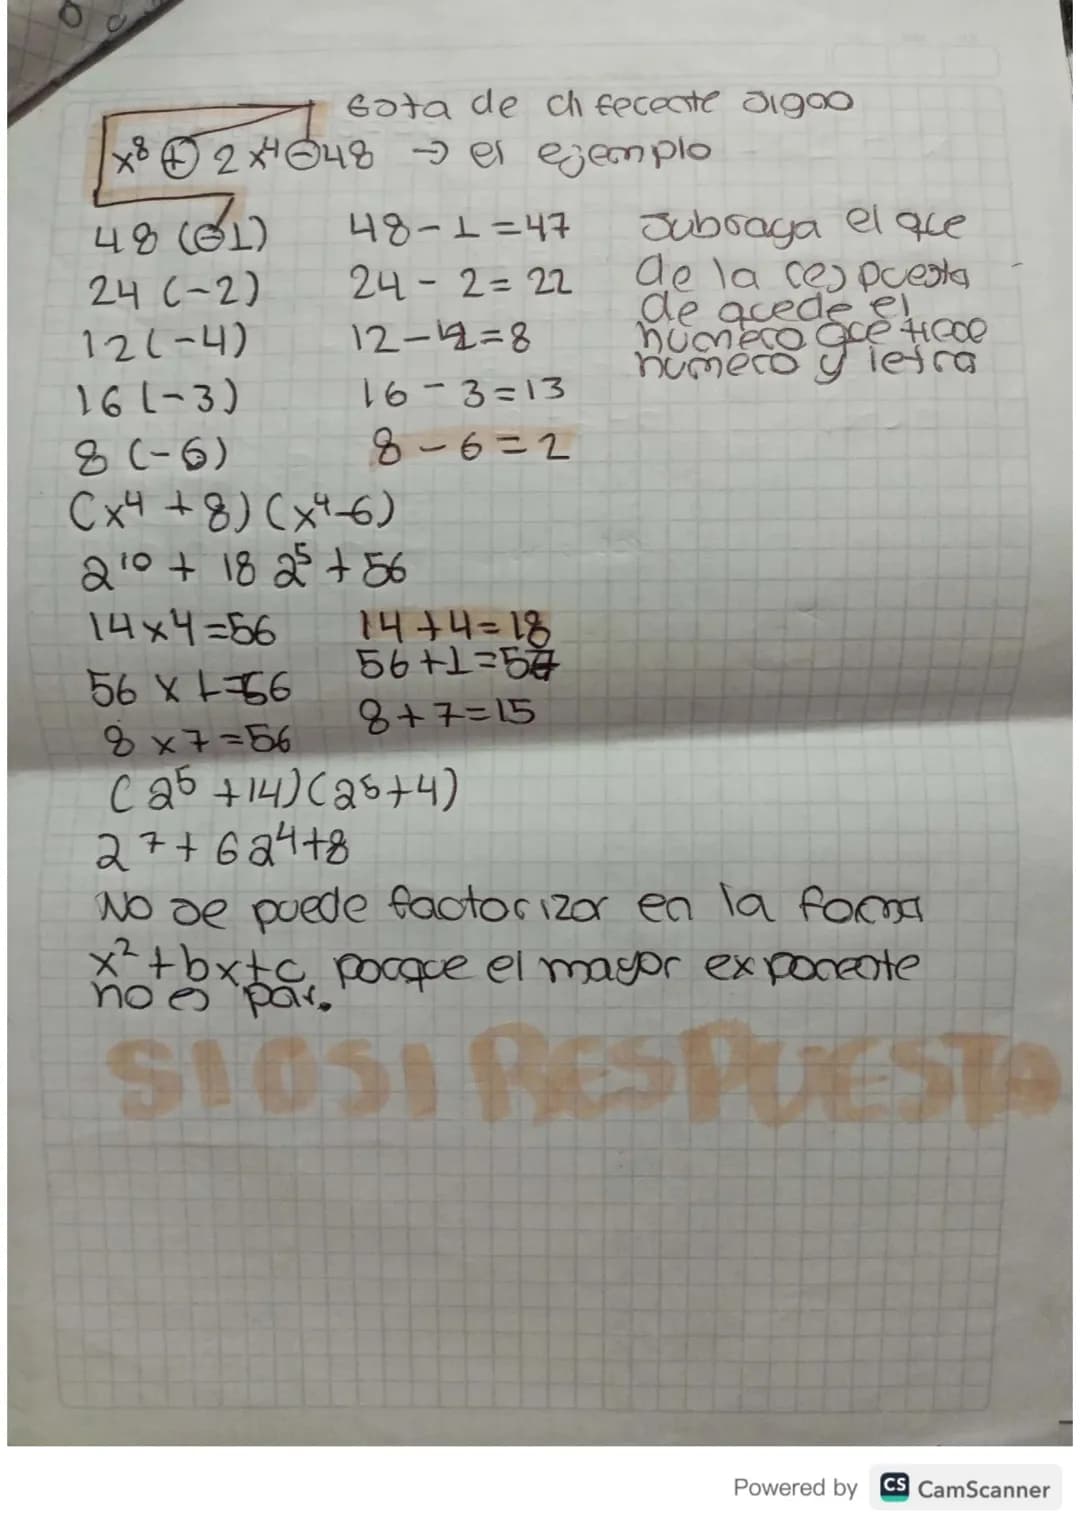 esta de diferente signo
x⁸ + 2x⁴ - 48 → es ejemplo
48 (-1) 48 - 1 = 47 subraya el que
24 (-2) 24 - 2 = 22 de la respuesta
de quede el
12 (-4) 12 - 4 = 8 número que tiene
numero y letra
16 (-3) 16 - 3 = 13
8 (-6) 8 - 6 = 2
(x⁴ + 8) (x⁴ - 6)
a¹⁰ + 18 a⁵ + 56
14 x 4 = 56 14 + 4 = 18
56 x 1 = 56 56 + 1 = 57
8 x 7 = 56 8 + 7 = 15
(a⁵ + 14) (a⁵ + 4)
a⁷ + 6a⁴ + 8
No se puede factorizar en la forma
x² + bx + c porque el mayor exponente
no es par.
SIOSI RESPUESTA
Powered by CS CamScanner